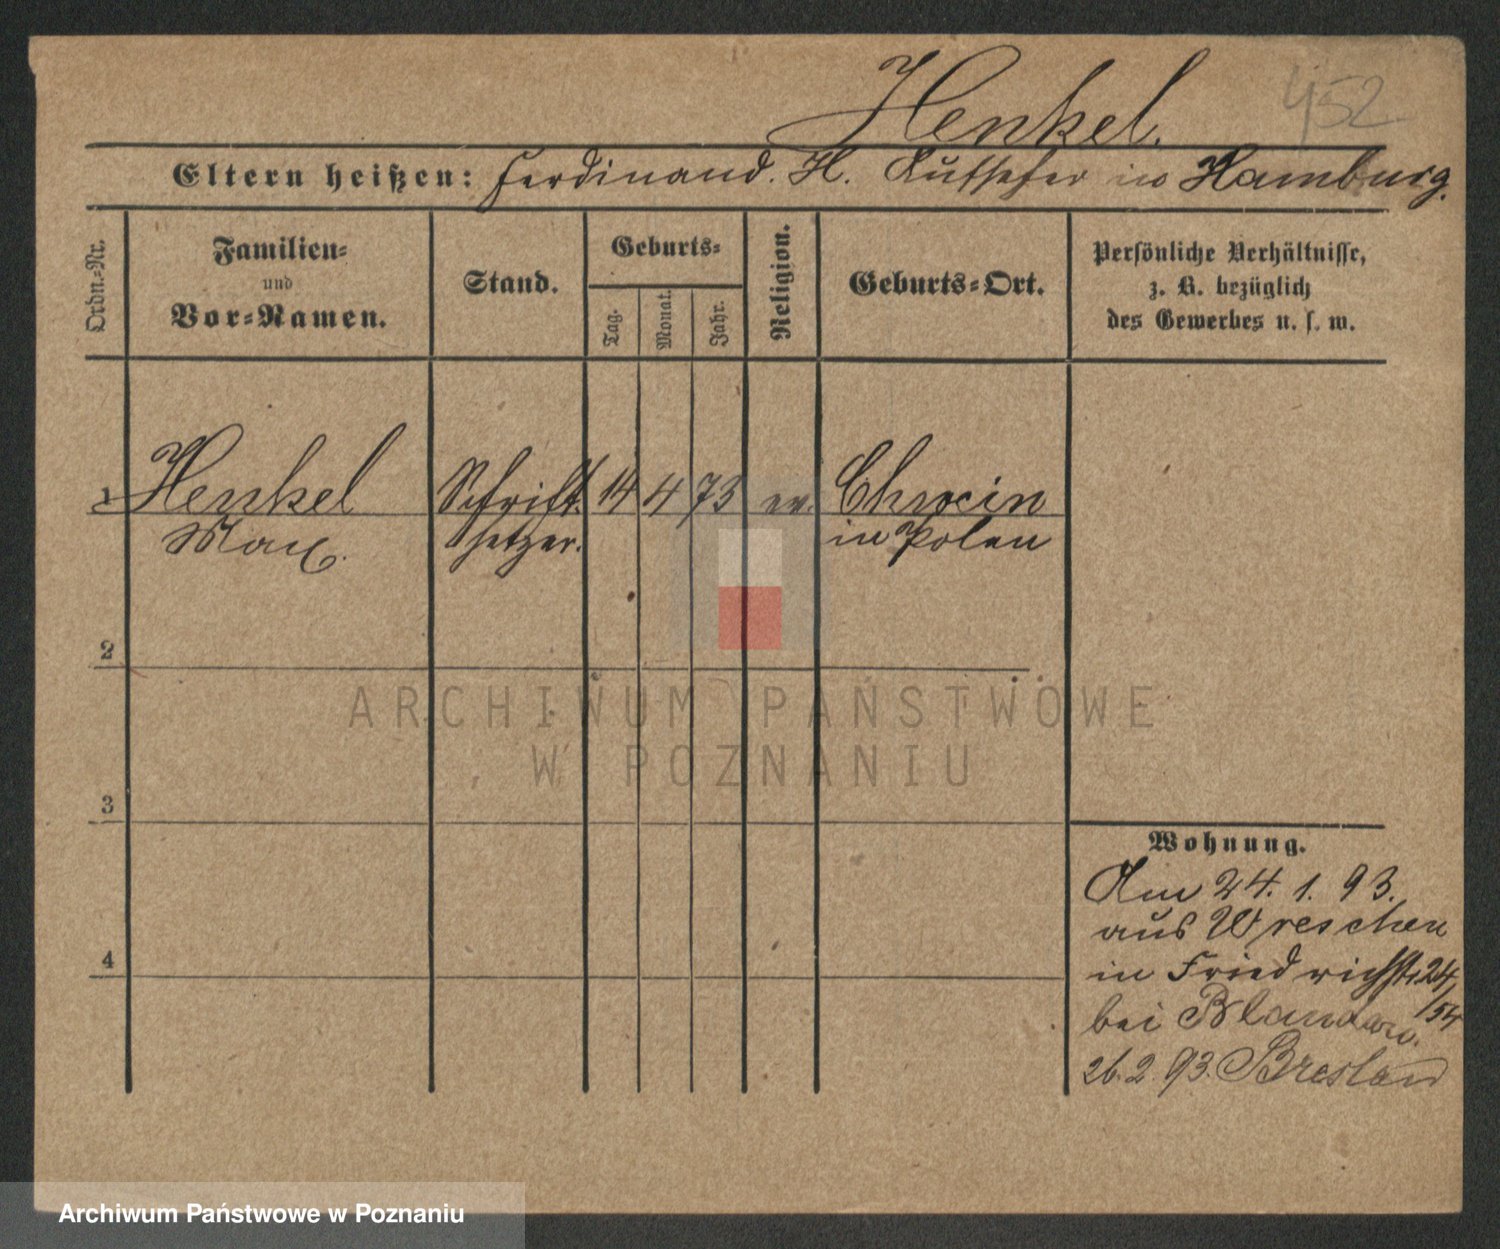 Henkel.
452
Eltern heißen: Ferdinand. H. Kutscher in Hamburg.
Ordn.-Nr.
Familien-
und
Vor-Namen.
Stand.
Geburts-
Tag.
Monat.
Jahr.
Religion.
Geburts-Ort.
Persönliche Verhältnisse,
z. B. bezüglich
des Gewerbes u. s. w.
1 Henkel Schrift- 14 4 73 ev. in Polen
Max. setzer.
2
ARCHIWUM PAŃSTWOWE
W POZNANIU
3
Wohnung.
Am 24. 1. 93.
aus Wreschen
in Friedrichstr. 24/
bei 154
26. 2. 93. Breslau
4
Archiwum Państwowe w Poznaniu